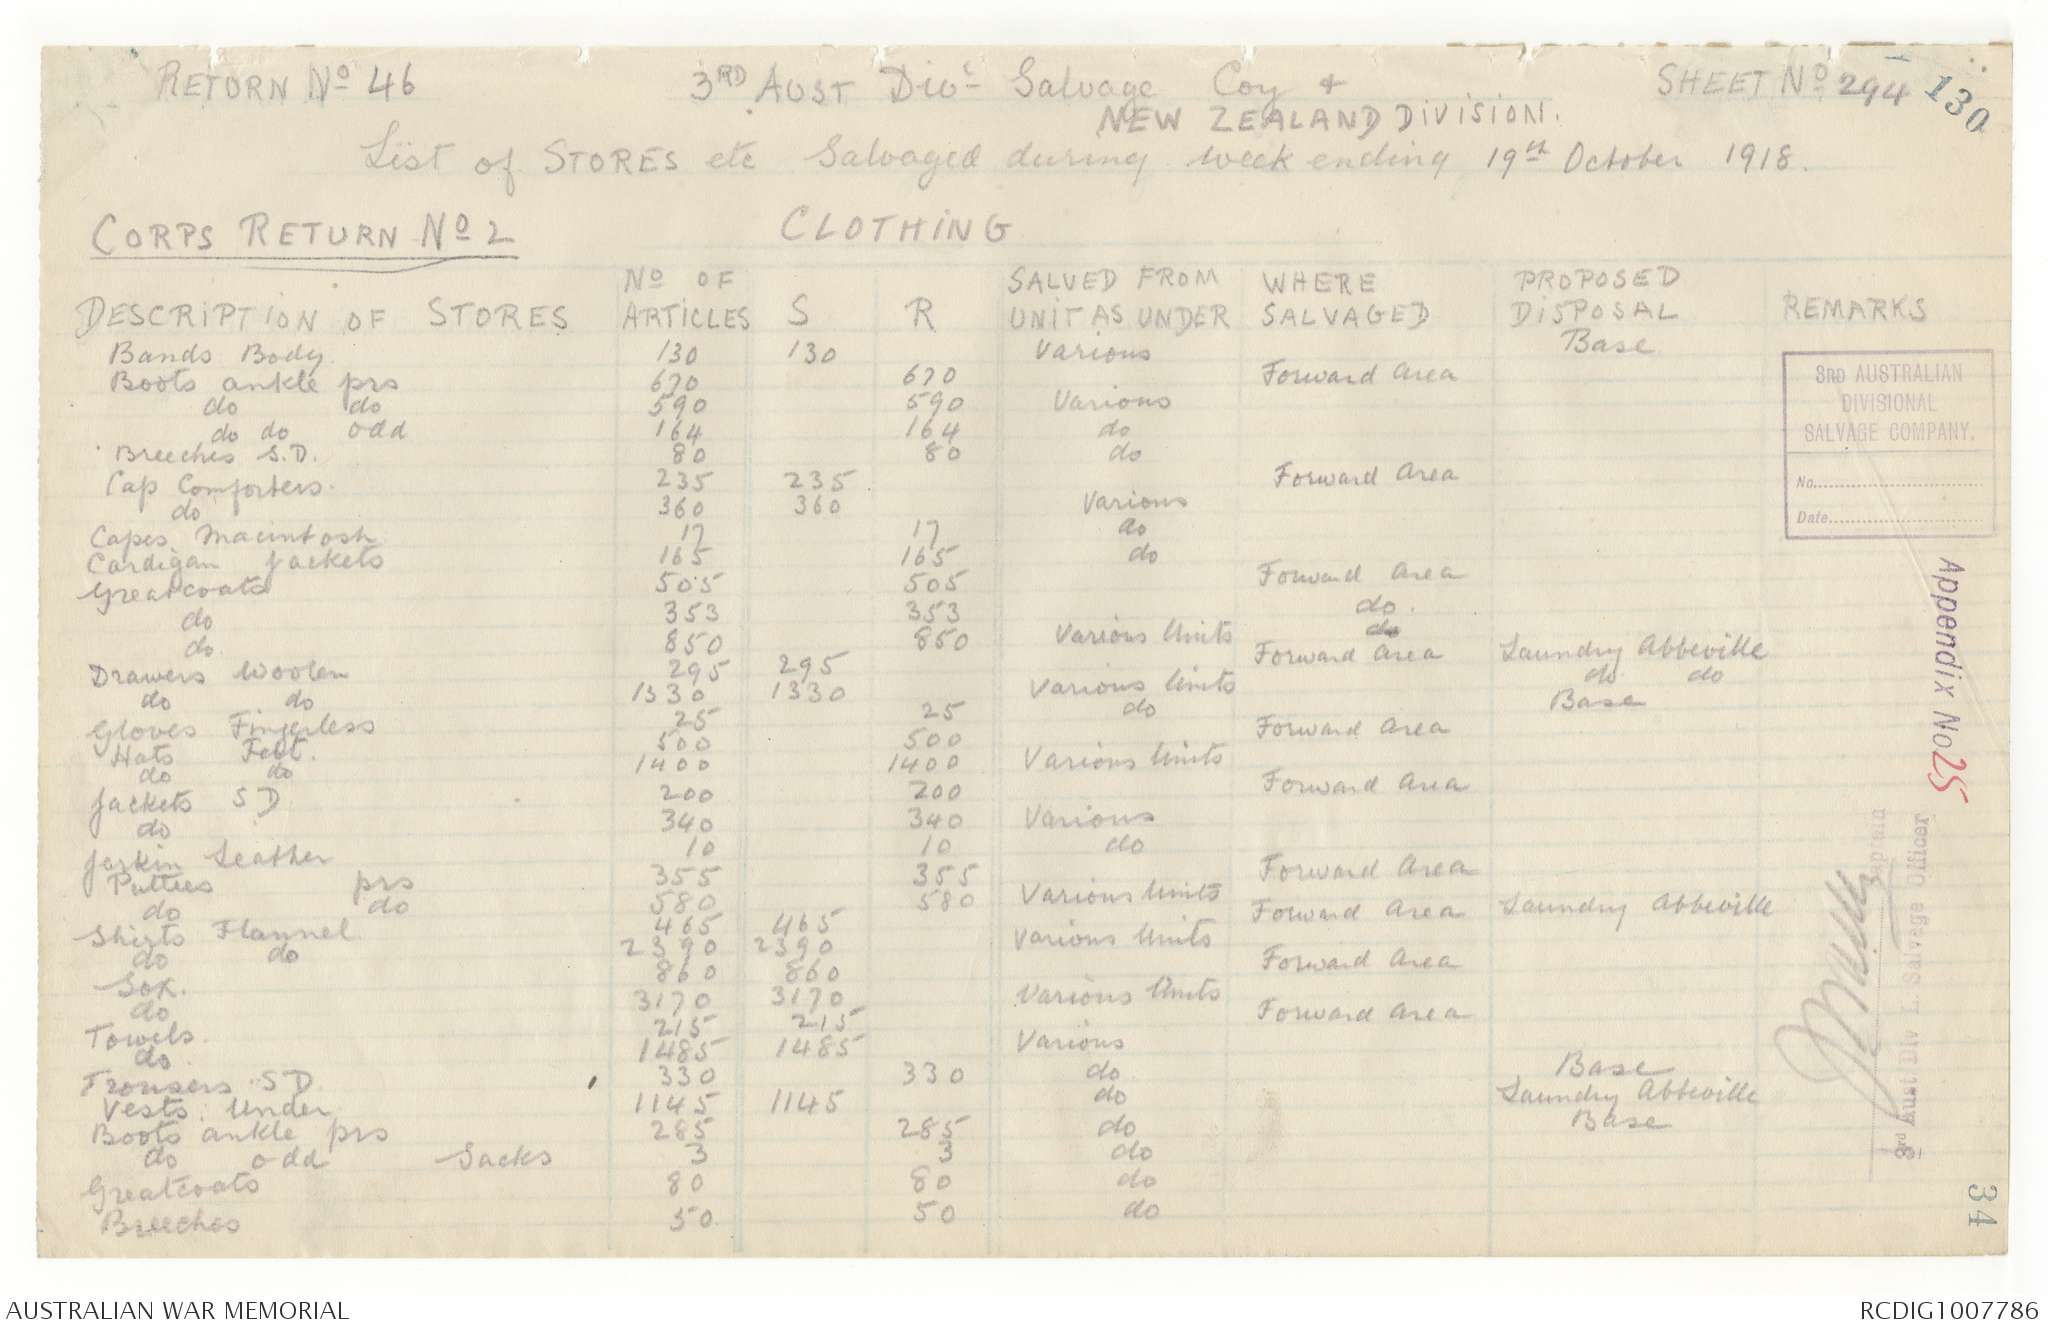 RETURN No 46 3RD AUST Divl Salvage Coy + SHEET No 294 130
NEW ZEALAND DIVISION.
List of STORES etc Salvaged during week ending 19th October 1918.
CORPS RETURN No 2 CLOTHING
DESCRIPTION OF STORES No OF ARTICLES S R SALVED FROM UNIT AS UNDER WHERE SALVAGED PROPOSED DISPOSAL REMARKS
Bands Body. 130 130 Various Base
Boots ankle prs 670 670 Forward Area
do do 590 590 Various
do do odd 164 164 do
Breeches S.D. 80 80 do
Cap Comforters. 235 235 Forward Area
do 360 360 Various
Capes Macintosh 17 17 do
Cardigan Jackets 165 165 do
Greatcoats 505 505 Forward Area
do 353 353 do.
do 850 850 Various Units do
Drawers Woolen 295 295 Forward Area Laundry Abbeville
do do 1330 1330 Various Units do do
Gloves Fingerless 25 25 do Base
Hats Felt. 500 500 Forward Area
do do 1400 1400 Various Units
Jackets S D 200 200 Forward Area
do 340 340 Various
Jerkin Leather 10 10 do
Puttees prs 355 355 Forward Area
do do 580 580 Various Units
Shirts Flannel 465 465 Forward Area Laundry Abbeville
do do 2390 2390 Various Units
Sox. 860 860 Forward Area
do 3170 3170 Various Units
Towels. 215 215 Forward Area
do. 1485 1485 Various
Trousers S D 330 330 do Base
Vests. Under 1145 1145 do Laundry Abbeville
Boots ankle prs 285 285 do Base
do odd Sacks 3 3 do
Greatcoats 80 80 do
Breeches 50 50 do
3RD AUSTRALIAN
DIVISIONAL
SALVAGE COMPANY.
No.
Date
Appendix No 25
Captain
3rd Aust Div L. Salvage Officer
34
AUSTRALIAN WAR MEMORIAL RCDIG1007786